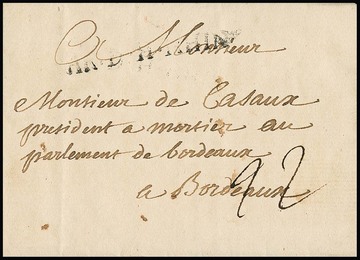 A Monsieur
Monsieur de Casaux
president a mortier au
parlement de bordeaux
a Bordeaux